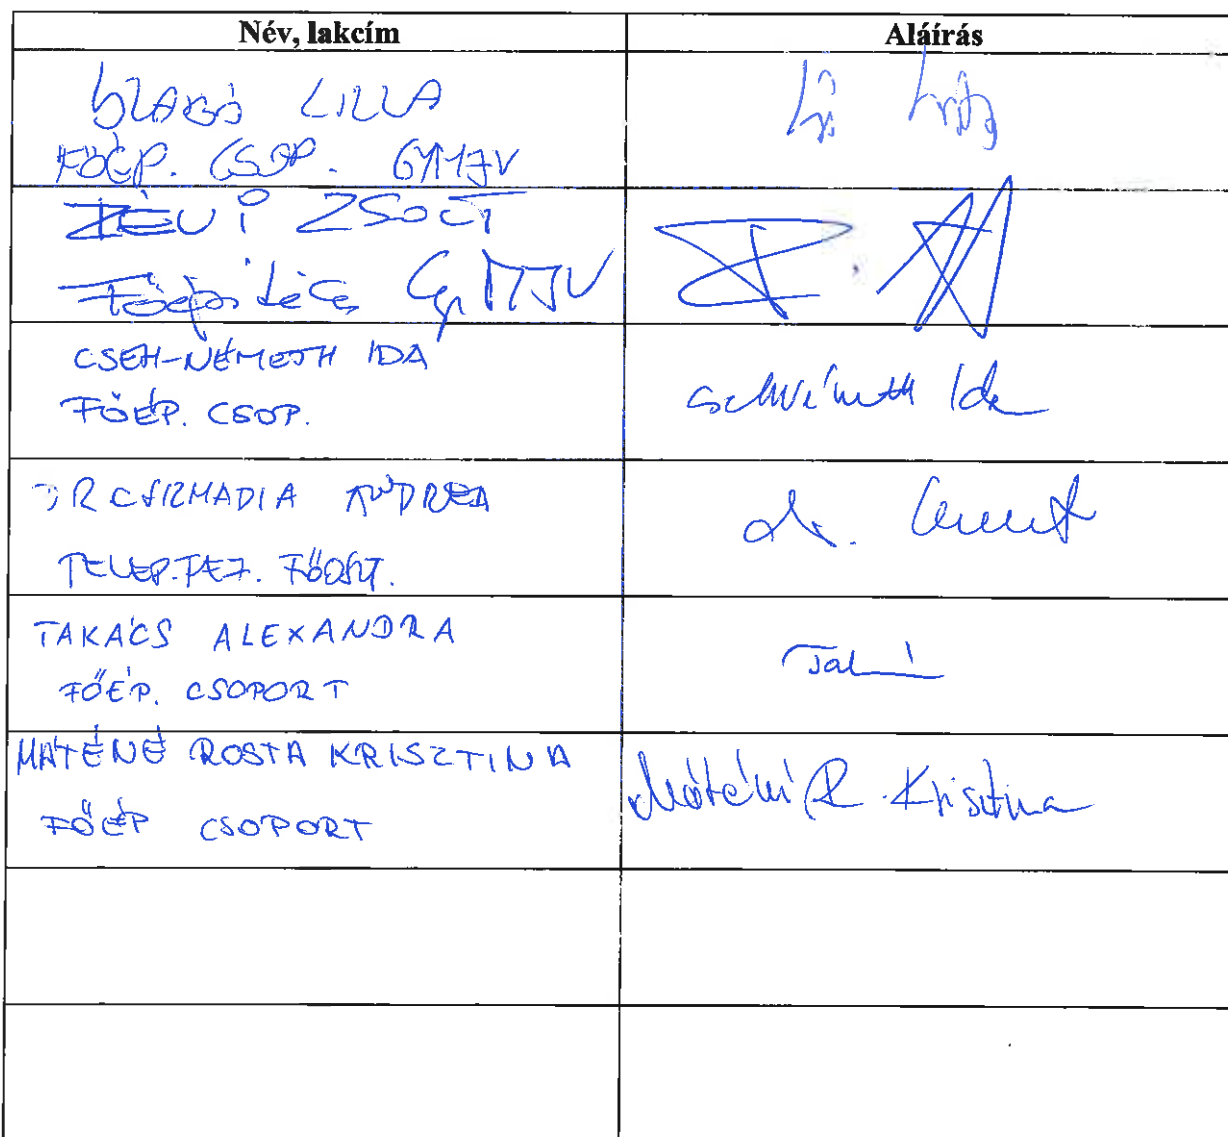 Név, lakcím
Aláírás
SZABÓ LILLA
FŐÉP. CSOP. GYMJV
ZSOLT
Főépítész Gy MJV
CSEH-NÉMETH IDA
FŐÉP. CSOP.
Cseh-Németh Ida
DR CSIZMADIA ANDREA
TELEP.FEJ. FŐOSZT.
dr.
TAKÁCS ALEXANDRA
FŐÉP. CSOPORT
MÁTÉNÉ ROSTA KRISZTINA
FŐÉP CSOPORT
Máténé R. Krisztina